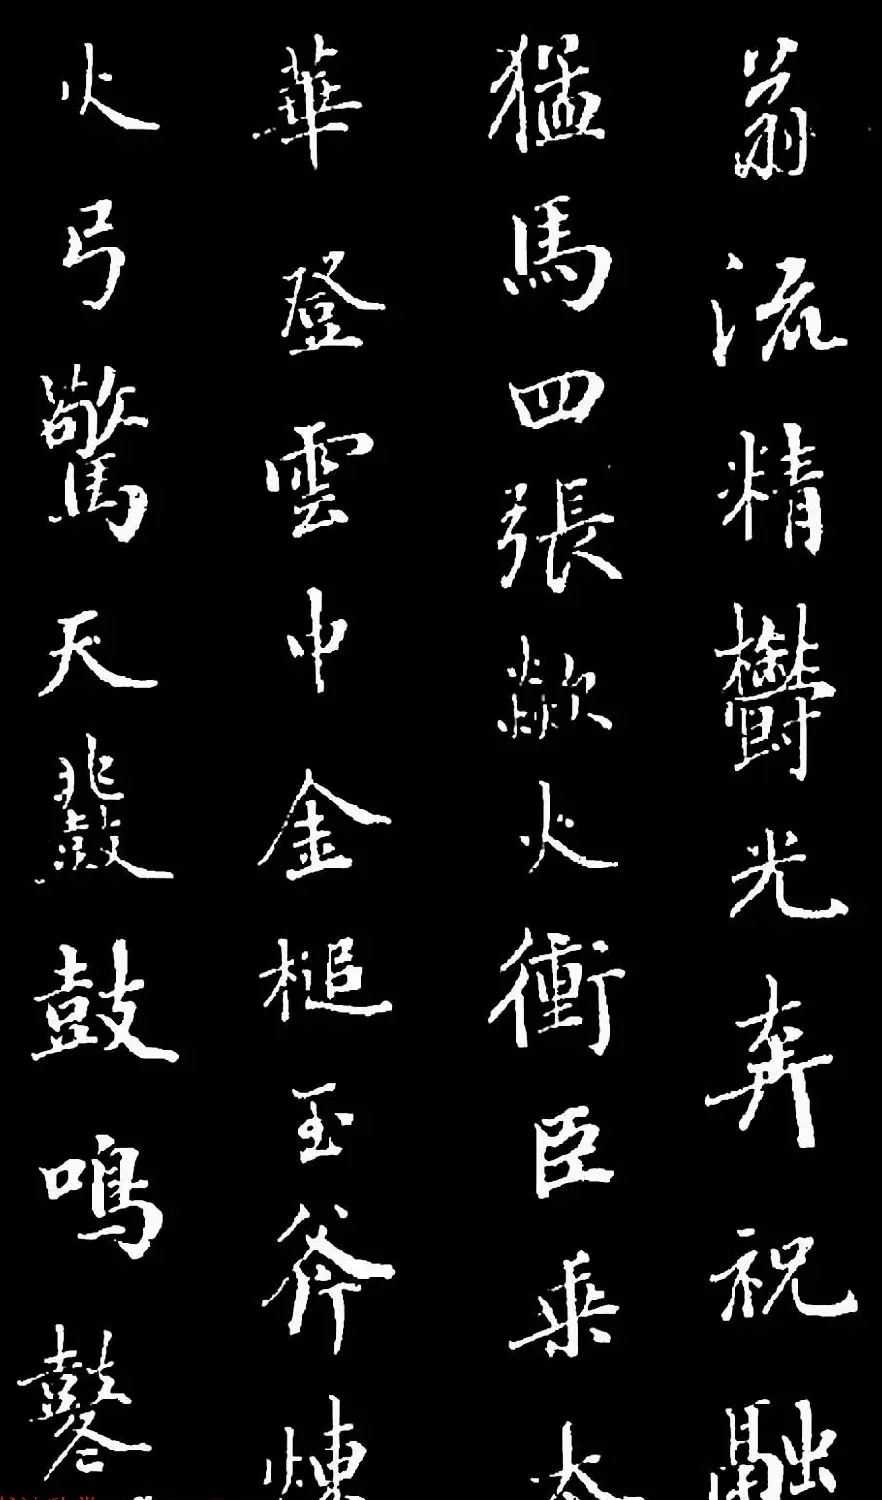 翁流精鬱光奔祝融
猛馬四張歘火衝臣乗太
華登雲中金槌玉斧煉
火弓驚天鼓鳴鼕